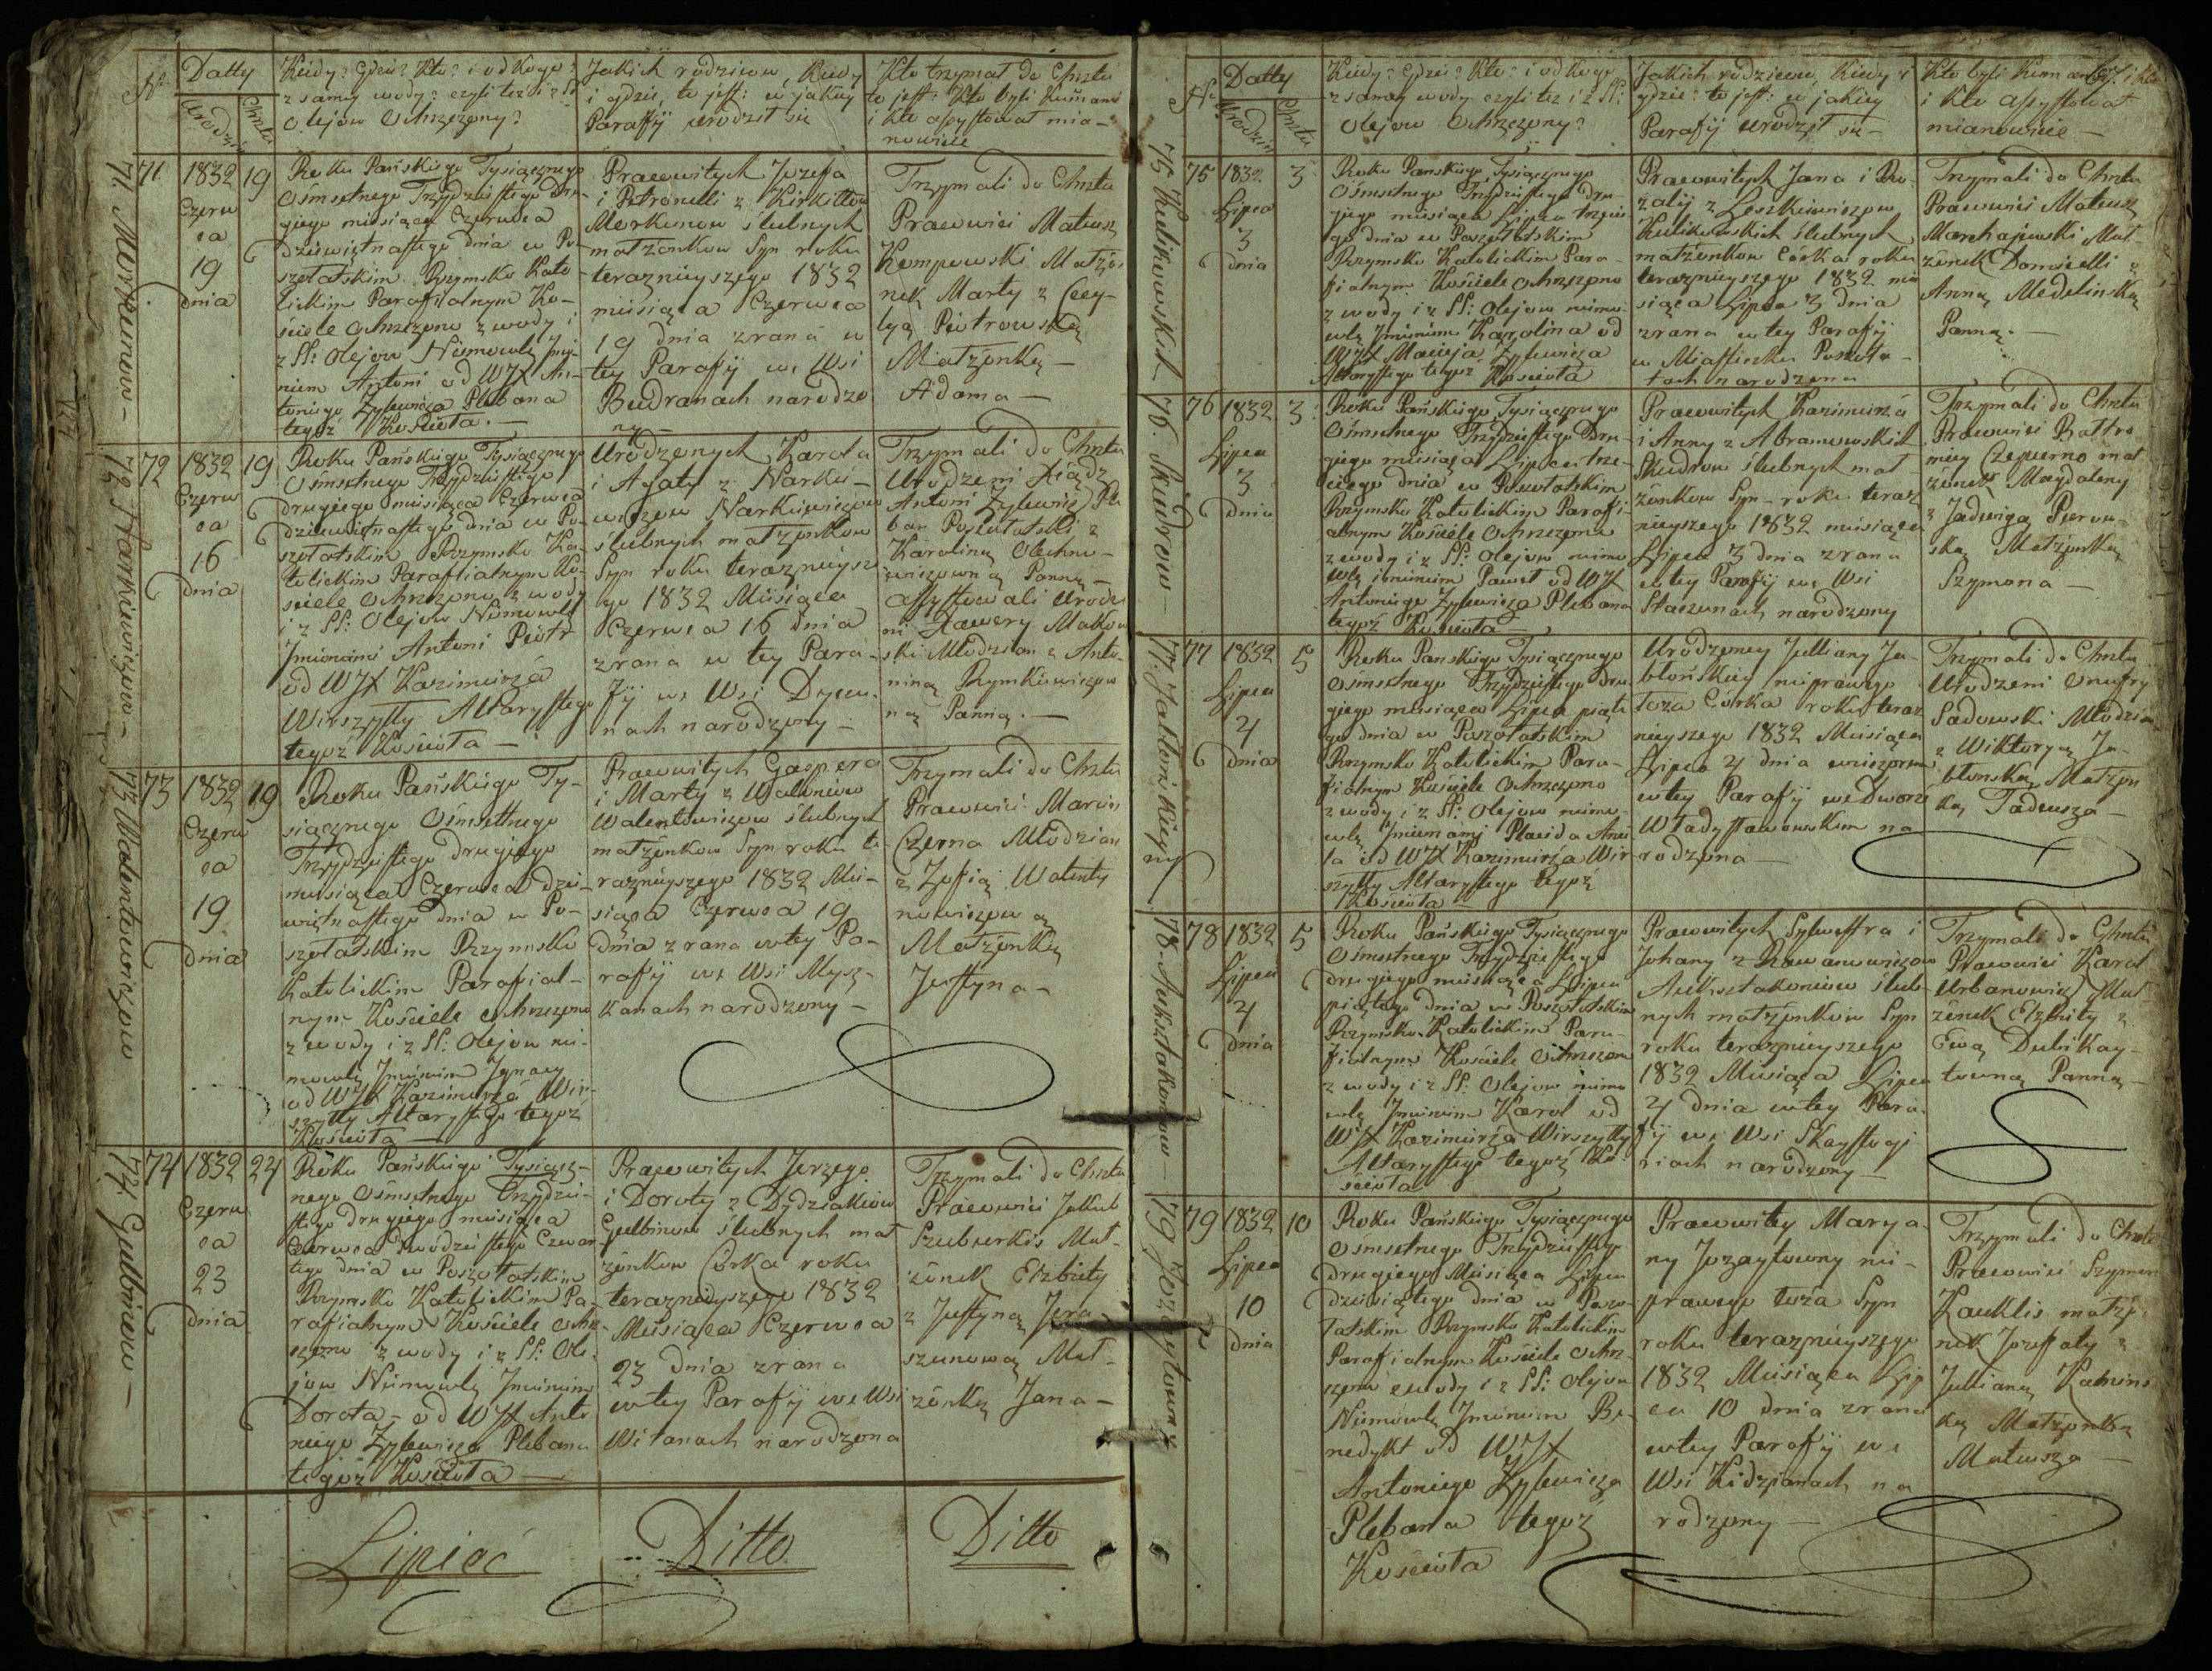 No
Datty
Urodzin
Chrztu
Kiedy? Gdzie? Kto? i od kogo?
z samey wody? czyli też i z SS:
Olejow Ochrzczony?
Jakich rodzicow, Kiedy
i gdzie, to jest: w jakiey
Parafij urodził się
Kto trzymał do Chrztu
to jest: Kto byli Kumami
i kto assystował mia-
nowicie
71. Merkunow-
71
1832
Czerw
ca
19
dnia
19
Roku Pańskiego Tysiącznego
Ośmsetnego Trzydziestego Dru-
giego miesiąca Czerwca
dziewiętnastego dnia w Po-
szołatskim Rzymsko Kato-
lickim Parafialnym Ko-
ściele Ochrzczono z wody i
z SS: Olejow Niemowlę Imie-
niem Antoni od WJX An-
toniego Zylewicza Plebana
tegoż Kościoła. -
Prawowitych Jozefa
i Petronelli z Kirkiłłow
Merkunow ślubnych
małżonkow Syn roku
teraznieyszego 1832
miesiąca Czerwca
19 dnia zrana w
tey Parafij we Wsi
Budranach narodzo
ny -
Trzymali do Chrztu
Prawowici Mateusz
Kompowski Małżo
nek Marty z Cecy-
lyą Piotrowską
Małżonką -
Adama -
72 Narkiewiczow-
72
1832
Czerw
ca
16
dnia
19
Roku Pańskiego Tysiącznego
Ośmsetnego Trzydziestego
drugiego miesiąca Czerwca
dziewiętnastego dnia w Po-
szołatskim Rzymsko Ka-
tolickim Parafialnym Ko-
ściele Ochrzczono z wody
i z SS: Olejow Niemowlę
Imionami Antoni Piotr
od WJX Kazimierza
Wirszyłły Altarystego
tegoż Kościoła -
Urodzonych Karola
i Agaty z Narkie-
wiczow Narkiewiczow
ślubnych małżonkow
Syn roku teraznieysze
go 1832 Miesiąca
Czerwca 16 dnia
zrana w tey Para-
fij we Wsi Dycu-
nach narodzony -
Trzymali do Chrztu
Urodzeni Xiądz
Antoni Zylewicz Ple
ban Poszołatski z
Karoliną Olechno-
wiczowną Panną -
assystowali Urodze
ni Xawery Makow
ski Młodzian z Anto-
niną Rymkiewiczow
ną Panną. -
73 Walentowiczow
73
1832
Czerw
ca
19
dnia
19
Roku Pańskiego Ty-
siącznego Ośmsetnego
Trzydziestego drugiego
miesiąca Czerwca dzie-
więtnastego dnia w Po-
szołatskim Rzymsko
Katolickim Parafial-
nym Kościele Ochrzczono
z wody i z SS: Olejow nie-
mowlę Imieniem Ignacy
od WJX Kazimierza Wir-
szyłły Altarystego tegoż
Kościoła -
Prawowitych Gaspera
i Marty z
Walentowiczow ślubnych
małżonkow Syn roku te-
raznieyszego 1832 Mie-
siąca Czerwca 19
dnia zrana w tey Pa-
rafij we Wsi Mysz-
kanach narodzony -
Trzymali do Chrztu
Prawowici Marcin
Czerna Młodzian
z Zofią Walenty
nowiczową
Małżonką
Justyna -
74. Gulbinow -
74
1832
Czerw
ca
23
dnia
24
Roku Pańskiego Tysiącz-
nego Ośmsetnego Trzydzie-
stego drugiego miesiąca
Czerwca Dwudziestego Czwar
tego dnia w Poszołatskim
Rzymsko Katolickim Pa-
rafialnym Kościele Och-
rzczono z wody i z SS: Ole-
jow Niemowlę Imieniem
Dorota - od WJX Anto
niego Zylewicza Plebana
tegoż Kościoła -
Prawowitych Jerzego
i Doroty z Dydziakiow
Gulbinow ślubnych mał
żonkow Corka roku
teraznieyszego 1832
Miesiąca Czerwca
23 dnia zrana
w tey Parafij we Wsi
Witanach narodzona
Trzymali do Chrztu
Prawowici Jakub
Szuburkis Mał-
żonek Elzbiety
z Justyną Jera-
szunową Mał-
żonką Jana -
Lipiec
Ditto
Ditto
No
Datty
Urodzin
Chrztu
Kiedy? Gdzie? Kto? i od kogo
z samey wody czyli też i z SS:
Olejow Ochrzczony?
Jakich rodzicow, Kiedy i
gdzie: to jest: w jakiey
Parafij urodził się -
Kto byli Kumami
i Kto assystował
mianowicie -
75 Kulikowskich
75
1832
Lipca
3
dnia
3
Roku Pańskiego Tysiącznego
Ośmsetnego Trzydziestego dru
giego miesiąca Lipca trzecie
go dnia w Poszołatskim
Rzymsko Katolickim Para-
fialnym Kościele Ochrzczono
z wody i z SS: Olejow niemo-
wlę Imieniem Karolina od
WJX Macieja Zylewicza
Altarystego tegoż Kościoła
Prawowitych Jana i Ro-
zalij z Leszkiewiczow
Kulikowskich ślubnych
małżonkow Corka roku
teraznieyszego 1832 mie
siąca Lipca 3 dnia
zrana w tey Parafij
w Miasteczku Poszoła-
tach narodzona
Trzymali do Chrztu
Prawowici Mateusz
Marchajewski Mał-
żonek Domicelli z
Anną Medelinską
Panną. -
76. Skudrow -
76
1832
Lipca
3
dnia
3
Roku Pańskiego Tysiącznego
Ośmsetnego Trzydziestego Dru-
giego miesiąca Lipca trze-
ciego dnia w Poszołatskim
Rzymsko Katolickim Parafi-
alnym Kościele Ochrzczono
z wody i z SS: Olejow niemo
wlę imieniem Paweł od WJX
Antoniego Zylewicza Plebana
tegoż Kościoła -
Prawowitych Kazimierza
i Anny z Abramowskich
Skudrow ślubnych mał-
żonkow Syn - roku teraz
nieyszego 1832 miesiąca
Lipca 3 dnia zrana
w tey Parafij we Wsi
Staszunach narodzony
Trzymali do Chrztu
Prawowici Bałtro
miey Czepurno mał
żonek Magdaleny
z Jadwigą Pierow-
ską Małżonką
Szymona -
77. Jabłońskiey
77
1832
Lipca
4
dnia
5
Roku Pańskiego Tysiącznego
Ośmsetnego Trzydziestego Dru
giego miesiąca Lipca piąte
go dnia w Poszołatskim
Rzymsko Katolickim Para-
fialnym Kościele Ochrzczono
z wody i z SS: Olejow niemo-
wlę Imionamj Placida Anie
la od WJX Kazimierza Wir-
szyłły Altarystego tegoż
Kościoła -
Urodzoney Julliany Ja-
błońskiey nieprawego
łoza Córka roku teraz
nieyszego 1832 Miesiąca
Lipca 4 dnia wieczorem
w tey Parafij we Dworze
Władysławowskim na
rodzona -
Trzymali do Chrztu
Urodzeni Onufry
Sadowski Młodzian
z Wiktoryą Ja-
błonską Małżon
ką Tadeusza -
78. Auksztakoniow -
78
1832
Lipca
4
dnia
5
Roku Pańskiego Tysiącznego
Ośmsetnego Trzydziestego
drugiego miesiąca Lipca
piątego dnia w Poszołatskim
Rzymsko Katolickim Para-
fialnym Kościele Ochrzczono
z wody i z SS: Olejow niemo
wlę Imieniem Karol od
WJX Kazimierza Wirszyłły
Altarystego tegoż Ko-
ścioła
Prawowitych Sylwestra i
Johany z
Auksztakoniow ślub-
nych małżonkow Syn
roku teraznieyszego
1832 Miesiąca Lipca
4 dnia w tey Para-
fij we Wsi Skaystogi
riach narodzony -
Trzymali do Chrztu
Prawowici Karol
Urbanowicz Mał-
żonek Elzbiety z
Ewą Dubikay-
towną Panną -
79 Jozaytowny
79
1832
Lipca
10
dnia
10
Roku Pańskiego Tysiącznego
Ośmsetnego Trzydziestego
drugiego Miesiąca Lipca
dziesiątego dnia w Poszo-
łatskim Rzymsko Katolickim
Parafialnym Kościele Ochrz-
czono z wody i z SS: Olejow
Niemowlę Imieniem Be-
nedykt od WJX
Antoniego Zylewicza
Plebana tegoż
Kościoła
Prawowitey Marya-
ny Jozaytowny nie-
prawego łoża Syn
roku teraznieyszego
1832 Miesiąca Lip
ca 10 dnia zrana
w tey Parafij we
Wsi Kidzianach na
rodzony -
Trzymali do Chrztu
Prawowici Szymon
Kauklis małżo-
nek Jozefaty z
Jullianą Kamins
ką Małżonką
Mateusza -